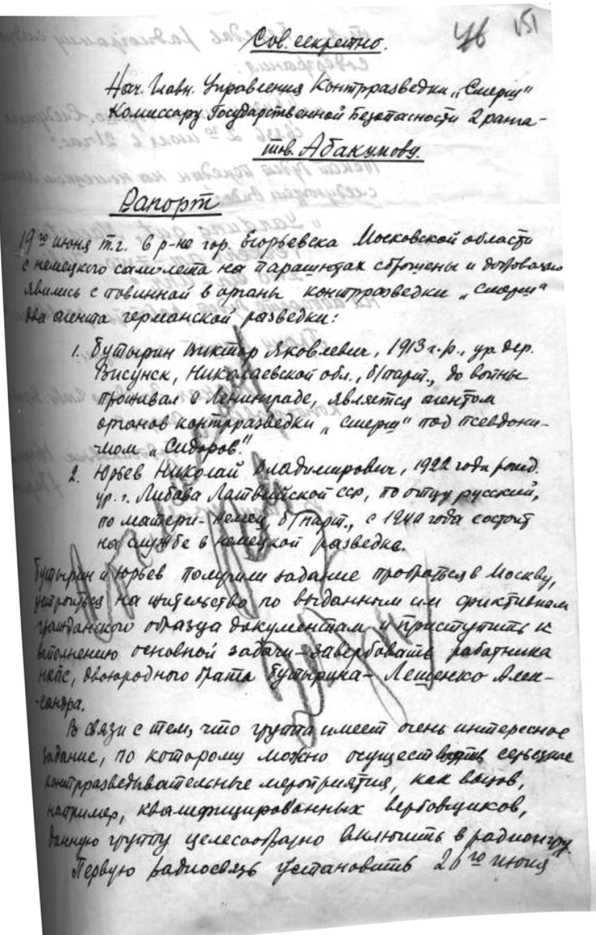 Сов. секретно.
46 151
Нач. Главн. Управления Контрразведки „Смерш"
Комиссару Государственной Безопасности 2 ранга –
тов. Абакумову.
Рапорт
19го июня т.г. в р-не гор. Егорьевска Московской области
с немецкого самолета на парашютах сброшены и добровольно
явились с повинной в органы контрразведки „Смерш"
два агента германской разведки:
1. Бутырин Виктор Яковлевич, 1913 г.р., ур. дер.
Висунск, Николаевской обл., б/парт., до войны
проживал в Ленинграде, является агентом
органов контрразведки „Смерш" под псевдони-
мом „Сидоров".
2. Юрьев Николай Владимирович, 1922 года рожд.
ур. г. Либава Латвийской ССР, по отцу русский,
по матери - немец, б/парт., с 1940 года состоит
на службе в немецкой разведке.
Бутырин и Юрьев получили задание пробраться в Москву,
устроиться на жительство по выданным им фиктивным
гражданского образца документам и приступить к
выполнению основной задачи – завербовать работника
НКПС, двоюродного брата Бутырина – Лещенко Алек-
сандра.
В связи с тем, что группа имеет очень интересное
задание, по которому можно осуществить серьезные
контрразведывательные мероприятия, как вызов,
например, квалифицированных вербовщиков,
данную группу целесообразно включить в радиоигру.
Первую радиосвязь установить 20го июня